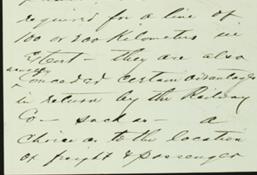 required for a line of
100 or 200 kilometers in
Extent - they are also
conceded certain advantages
in return by the Railway
Co - such as - a
choice as to the location
of freight & passenger